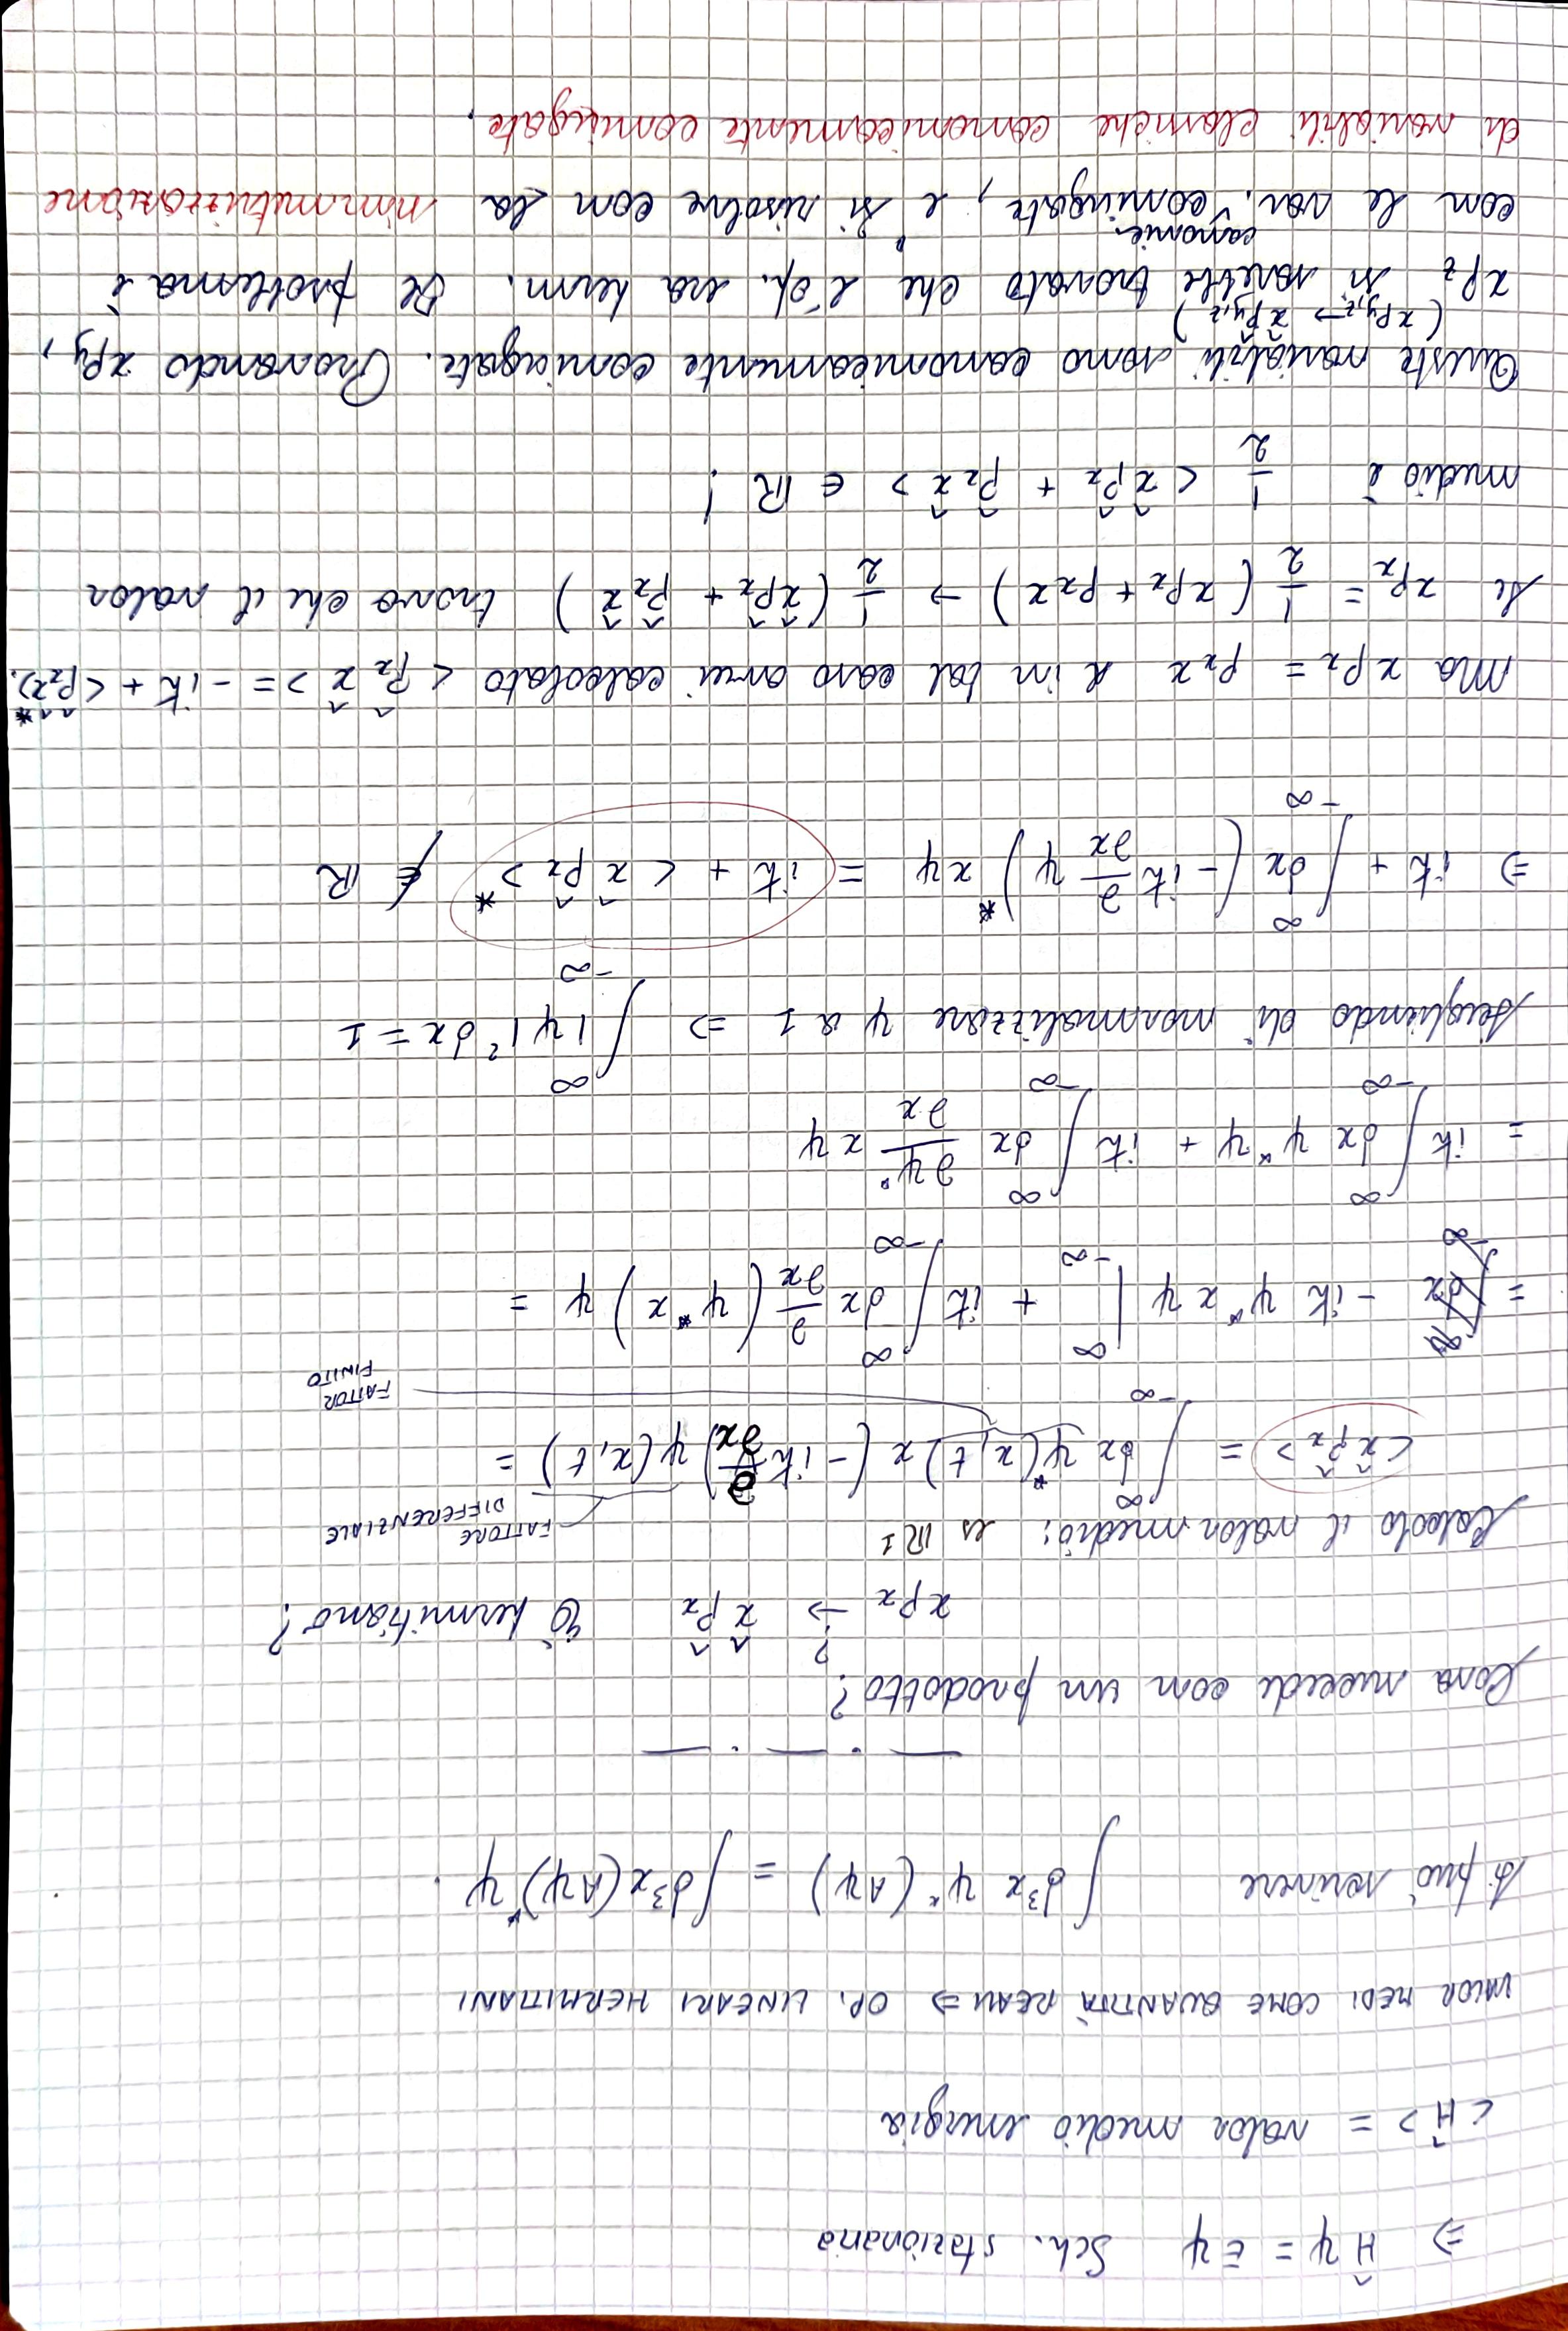 ⇒ Ĥψ = Eψ Sch. stazionaria
<Ĥ> = valor medio energia
VALOR MEDI COME QUANTITÀ REALI ⇒ OP. LINEARI HERMITIANI
Si può scrivere ∫ d³x ψ* (Aψ) = ∫ d³x (Aψ)* ψ .
Cosa succede con un prodotto?
x pₓ →? x̂ p̂ₓ È hermitiano?
Calcolo il valor medio: es ℝ1
FATTORE DIFFERENZIALE
<x̂ p̂ₓ> = ∫_{-∞}^{∞} dx ψ*(x,t) x (-iħ ∂/∂x) ψ(x,t) =
FATTOR FINITO
= -iħ ψ* x ψ |_{-∞}^{∞} + iħ ∫_{-∞}^{∞} dx ∂/∂x (ψ* x) ψ =
= iħ ∫_{-∞}^{∞} dx ψ* ψ + iħ ∫_{-∞}^{∞} dx ∂ψ*/∂x x ψ
Scegliendo di normalizzare ψ a 1 ⇒ ∫_{-∞}^{∞} |ψ|² dx = 1
⇒ iħ + ∫_{-∞}^{∞} dx (-iħ ∂/∂x ψ)* x ψ = iħ + <x̂ p̂ₓ>* ∉ ℝ
Ma x pₓ = pₓ x e in tal caso avrei calcolato <p̂ₓ x̂> = -iħ + <p̂ₓ x̂>*.
Se x pₓ = 1/2 (x pₓ + pₓ x) → 1/2 (x̂ p̂ₓ + p̂ₓ x̂) trovo che il valor
medio è 1/2 <x̂ p̂ₓ + p̂ₓ x̂> ∈ ℝ !
Queste variabili sono canonicamente coniugate. Provando x p_y,
(x p_{y,z} → x̂ p̂_{y,z})
x p_z si sarebbe trovato che l'op. era herm. Il problema è
con le var. canonic. coniugate, e si risolve con la simmetrizzazione
di variabili classiche canonicamente coniugate.